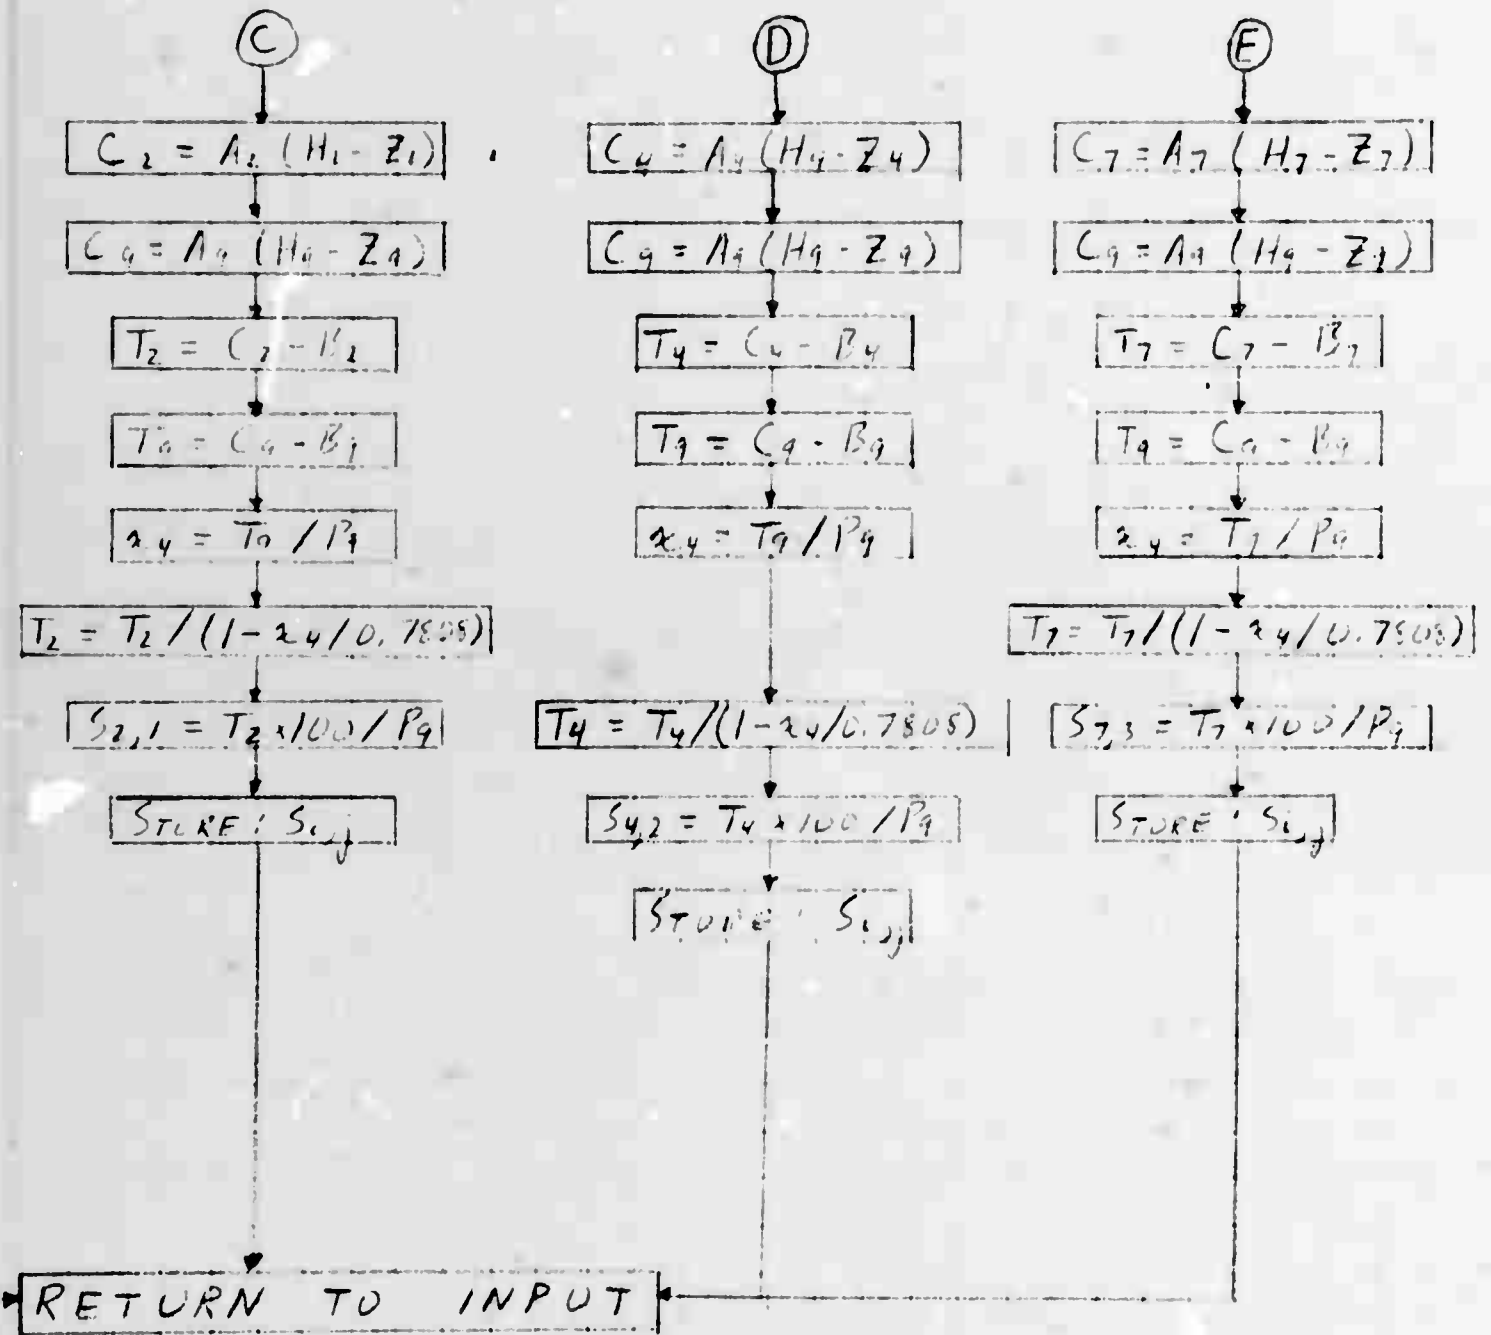 C
C₂ = A₂ (H₂ - Z₂)
C₉ = A₉ (H₉ - Z₉)
T₂ = C₂ - B₂
T₉ = C₉ - B₉
x₄ = T₉ / P₉
T₂ = T₂ / (1 - x₄ / 0.7808)
S₂,₁ = T₂ × 100 / P₉
STORE : Sᵢ,ⱼ
D
C₄ = A₄ (H₄ - Z₄)
C₉ = A₉ (H₉ - Z₉)
T₄ = C₄ - B₄
T₉ = C₉ - B₉
x₄ = T₉ / P₉
T₄ = T₄ / (1 - x₄ / 0.7808)
S₄,₂ = T₄ × 100 / P₉
STORE : Sᵢ,ⱼ
E
C₇ = A₇ (H₇ - Z₇)
C₉ = A₉ (H₉ - Z₉)
T₇ = C₇ - B₇
T₉ = C₉ - B₉
x₄ = T₉ / P₉
T₇ = T₇ / (1 - x₄ / 0.7808)
S₇,₃ = T₇ × 100 / P₉
STORE : Sᵢ,ⱼ
RETURN TO INPUT